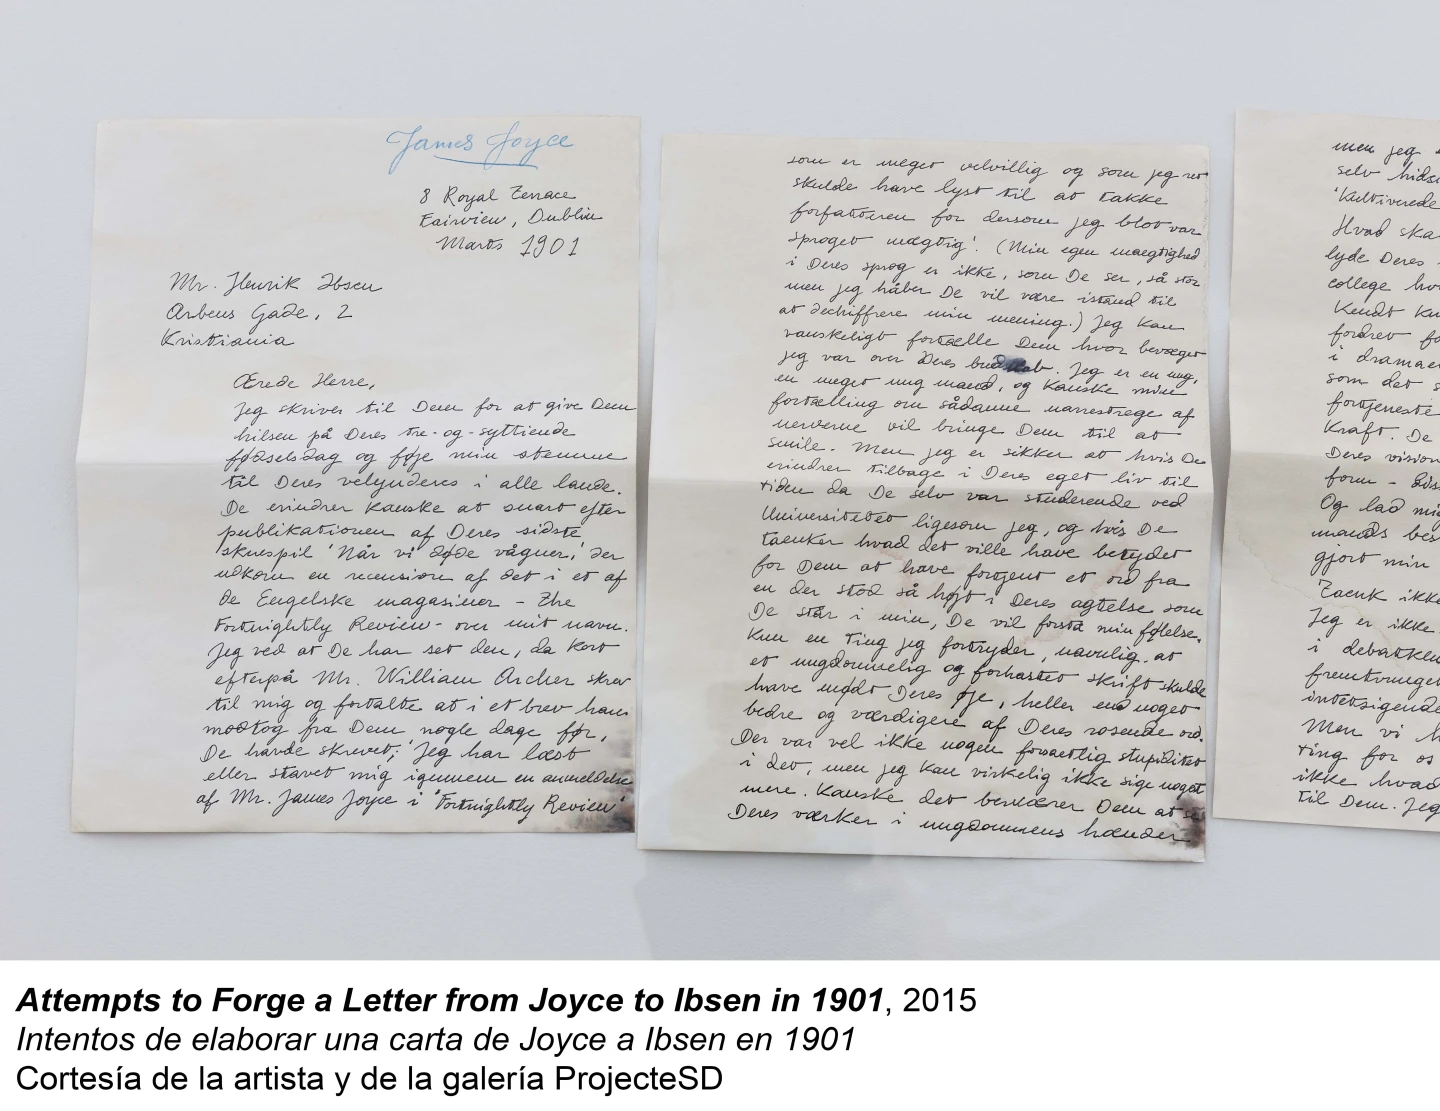 James Joyce
8 Royal Terrace
Fairview, Dublin
Marts 1901
Mr. Henrik Ibsen
Arbens Gade, 2
Kristiania
Ærede Herre,
Jeg skriver til Dem for at give Dem
hilsen på Deres tre-og-syttiende
fødselsdag og føje min stemme
til Deres velynderes i alle lande.
De erindrer kanske at snart efter
publikationen af Deres sidste
skuespil 'Når vi døde vågner,' der
udkom en recension af det i et af
de Engelske magasiner – The
Fortnightly Review – over mit navn.
Jeg ved at De har set den, da kort
efterpå Mr. William Archer skrev
til mig og fortalte at i et brev han
modtog fra Dem nogle dage før,
De havde skrevet; 'Jeg har læst
eller stavet mig igennem en anmeldelse
af Mr. James Joyce i 'Fortnightly Review'
som er meget velvillig og som jeg ret
skulde have lyst til at takke
forfatteren for dersom jeg blot var
sproget mægtig'. (Min egen maegtighed
i Deres sprog er ikke, som De ser, så stor
men jeg håber De vil være istand til
at dechiffrere min mening.) Jeg kan
vanskeligt fortælle Dem hvor bevæget
jeg var over Deres budskab. Jeg er en ung,
en meget ung mand, og kanske min
fortælling om sådanne narrestrege af
nerverne vil bringe Dem til at
smile. Men jeg er sikker at hvis De
erindrer tilbage i Deres eget liv til
tiden da De selv var studerende ved
Universitetet ligesom jeg, og hvis De
taenker hvad det ville have betydet
for Dem at have fortjent et ord fra
en der stod så højt i Deres agtelse som
De står i min, De vil forstå min følelse.
Kun en ting jeg fortryder, navnlig at
et ungdommelig og forhastet skrift skulde
have mødt Deres øje, heller end noget
bedre og værdigere af Deres rosende ord.
Der var vel ikke nogen forsaetlig stupiditet
i det, men jeg kan virkelig ikke sige noget
mere. Kanske det besværer Dem at se
Deres værker i ungdommens hænder
men jeg
selv hids
'Kultiverede
Hvad ska
lyde Deres
college ho
Kendt Ku
fordret fo
i dramae
som det s
fortjeneste
Kraft. De
Deres vision
form –
Og lad mi
mands bes
gjort min
Taenk ikke
Jeg er ikke
i debatklu
fremtvunget
intetsigende
Men vi h
ting for os
ikke hvad
til Dem. Jeg
Attempts to Forge a Letter from Joyce to Ibsen in 1901, 2015
Intentos de elaborar una carta de Joyce a Ibsen en 1901
Cortesía de la artista y de la galería ProjecteSD